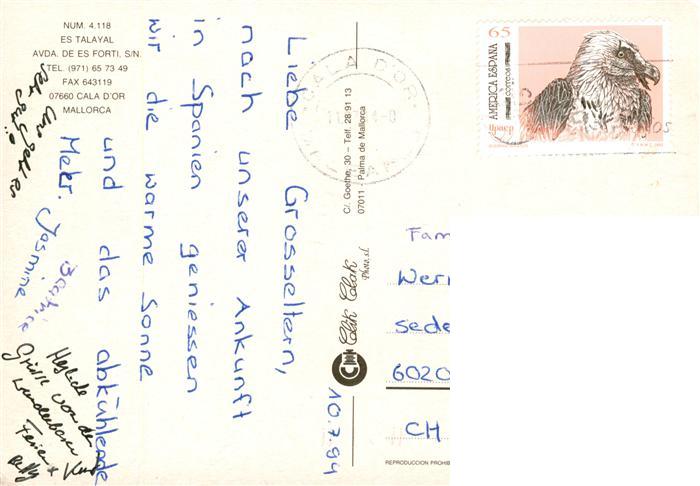 NUM. 4.118
ES TALAYAL
AVDA. DE ES FORTI, S/N
TEL. (971) 65 73 49
FAX 643119
07660 CALA D'OR
MALLORCA
Liebe Grosseltern,
nach unserer Ankunft
in Spanien geniessen
wir die warme Sonne
und das abkühlende
Meer. Jasmine
Beatrice
Herzliche
Grüsse von den
wunderbaren
Ferien +
10.7.94
C/. Goethe, 30 – Telf. 28 91 13
07011 - Palma de Mallorca
Clik Clak
Photo, s.l.
CALA D'OR
65
AMERICA ESPAÑA
CORREOS
Upaep
Fam
Wern
sede
6020
CH
REPRODUCCION PROHIB